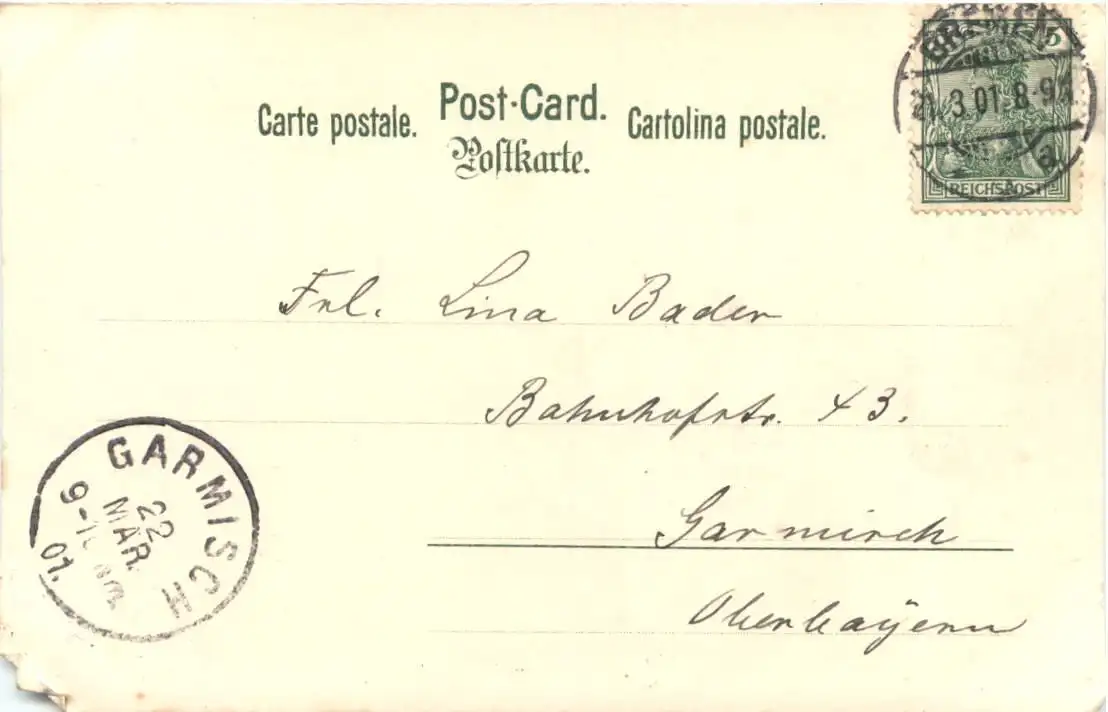 Carte postale. Post-Card. Cartolina postale.
Postkarte.
BREMEN
21.3.01.8-9V.
a
5
REICHSPOST
Frl. Lina Bader
Bahnhofstr. 43.
Garmisch
Oberbayern
GARMISCH
22
MAR.
9-10
01.